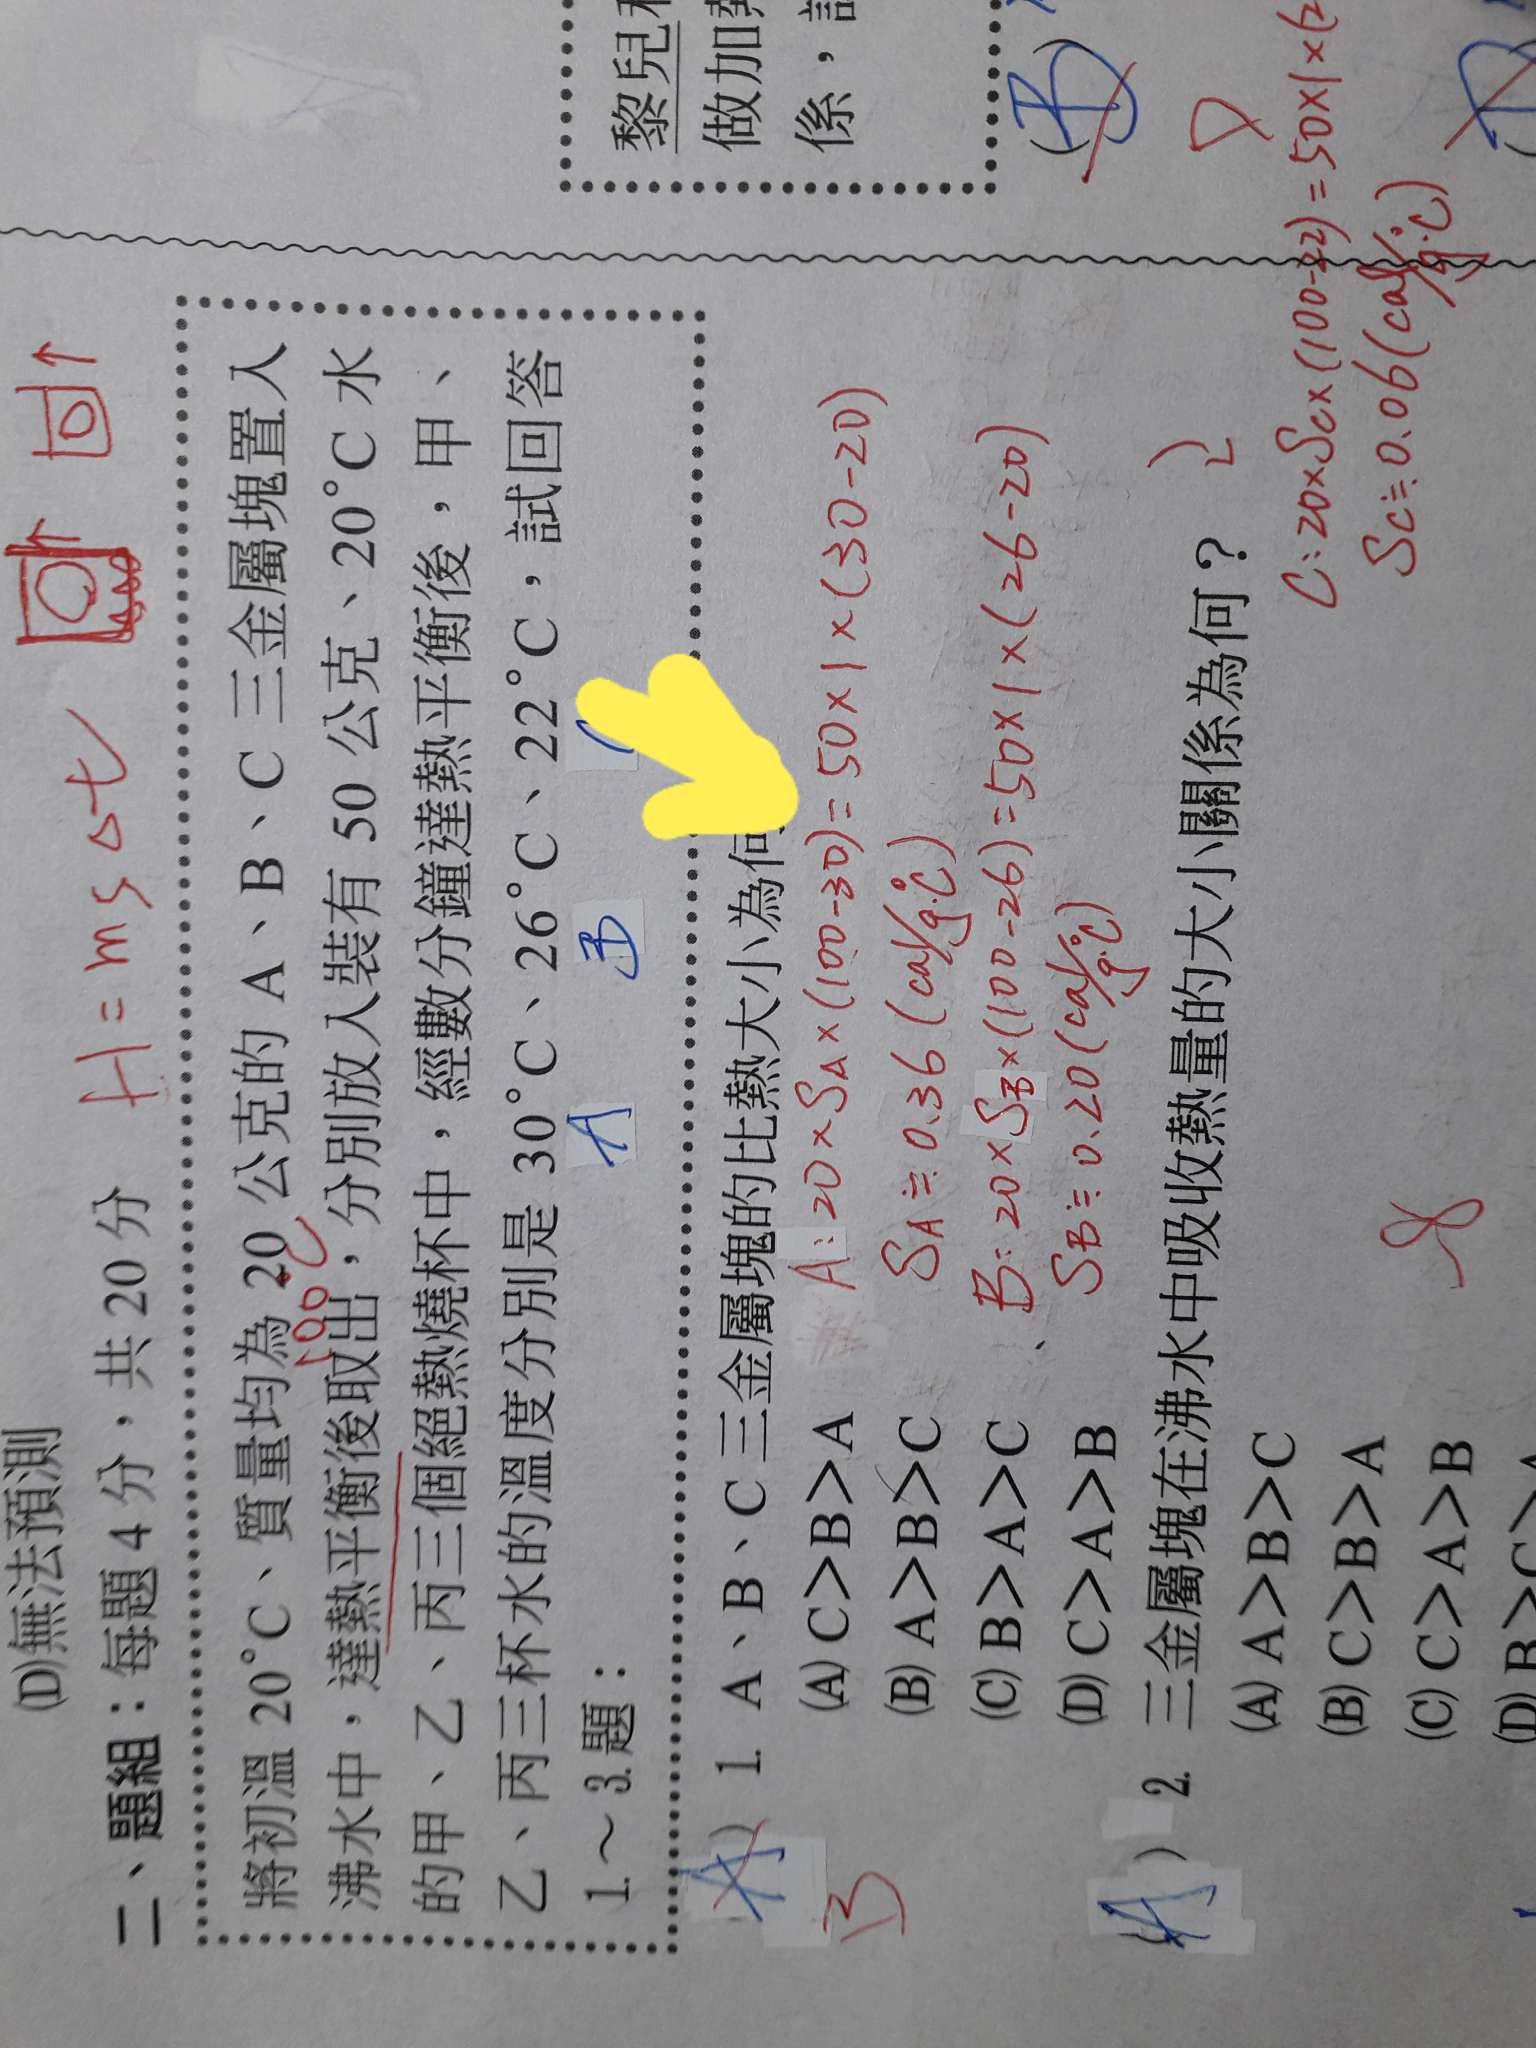 (D)無法預測
二、題組：每題 4 分，共 20 分
H = m s △t
將初溫 20°C、質量均為 20 公克的 A、B、C 三金屬塊置入
100°C
沸水中，達熱平衡後取出，分別放入裝有 50 公克、20°C 水
的甲、乙、丙三個絕熱燒杯中，經數分鐘達熱平衡後，甲、
乙、丙三杯水的溫度分別是 30°C、26°C、22°C，試回答
A B
1.～3.題：
(A) 1. A、B、C 三金屬塊的比熱大小為何
B
A: 20×SA×(100-30)=50×1×(30-20)
(A) C＞B＞A
SA≒0.36 (cal/g·°C)
(B) A＞B＞C
B: 20×SB×(100-26)=50×1×(26-20)
(C) B＞A＞C
SB≒0.20 (cal/g·°C)
(D) C＞A＞B
(A) 2. 三金屬塊在沸水中吸收熱量的大小關係為何？
(A) A＞B＞C
C: 20×SC×(100-22)=50×1×(2
(B) C＞B＞A
SC≒0.06 (cal/g·°C)
(C) C＞A＞B
(D) B＞C＞A
黎兒
做加熱
係，
(B)